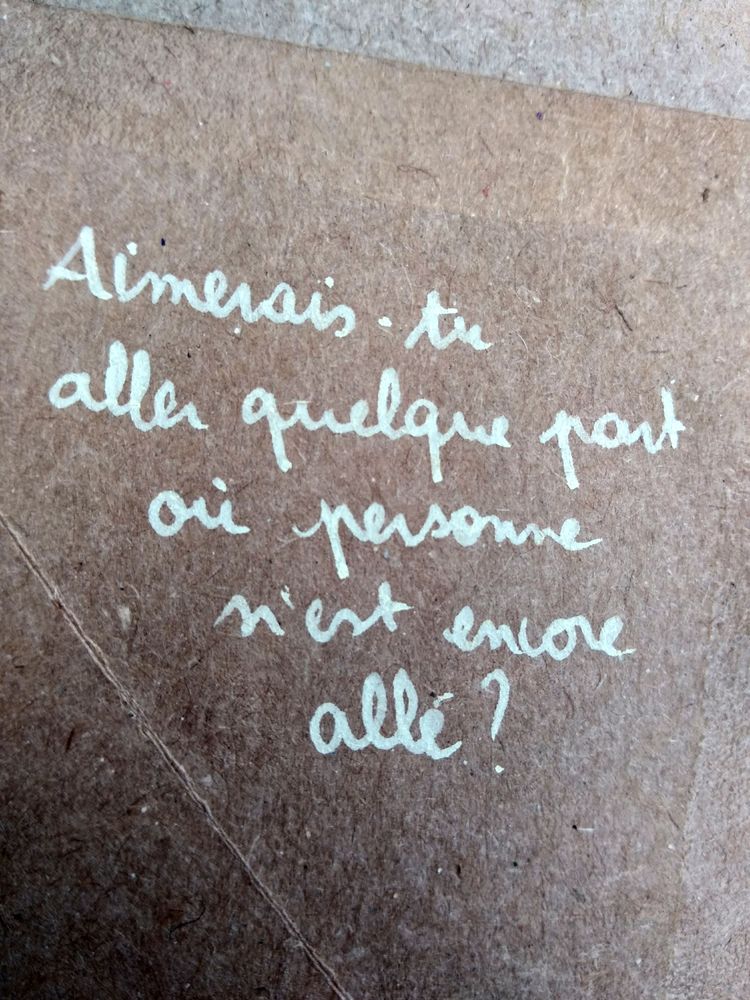 Aimerais-tu
aller quelque part
où personne
n'est encore
allé ?